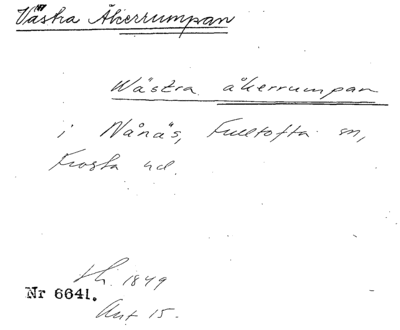 Västra Åkerrumpan
Wästra åkerrumpan
i Nånäs, Fulltofta sn,
Frosta hd.
Sk. 1849
Nr 6641.
Akt 15.